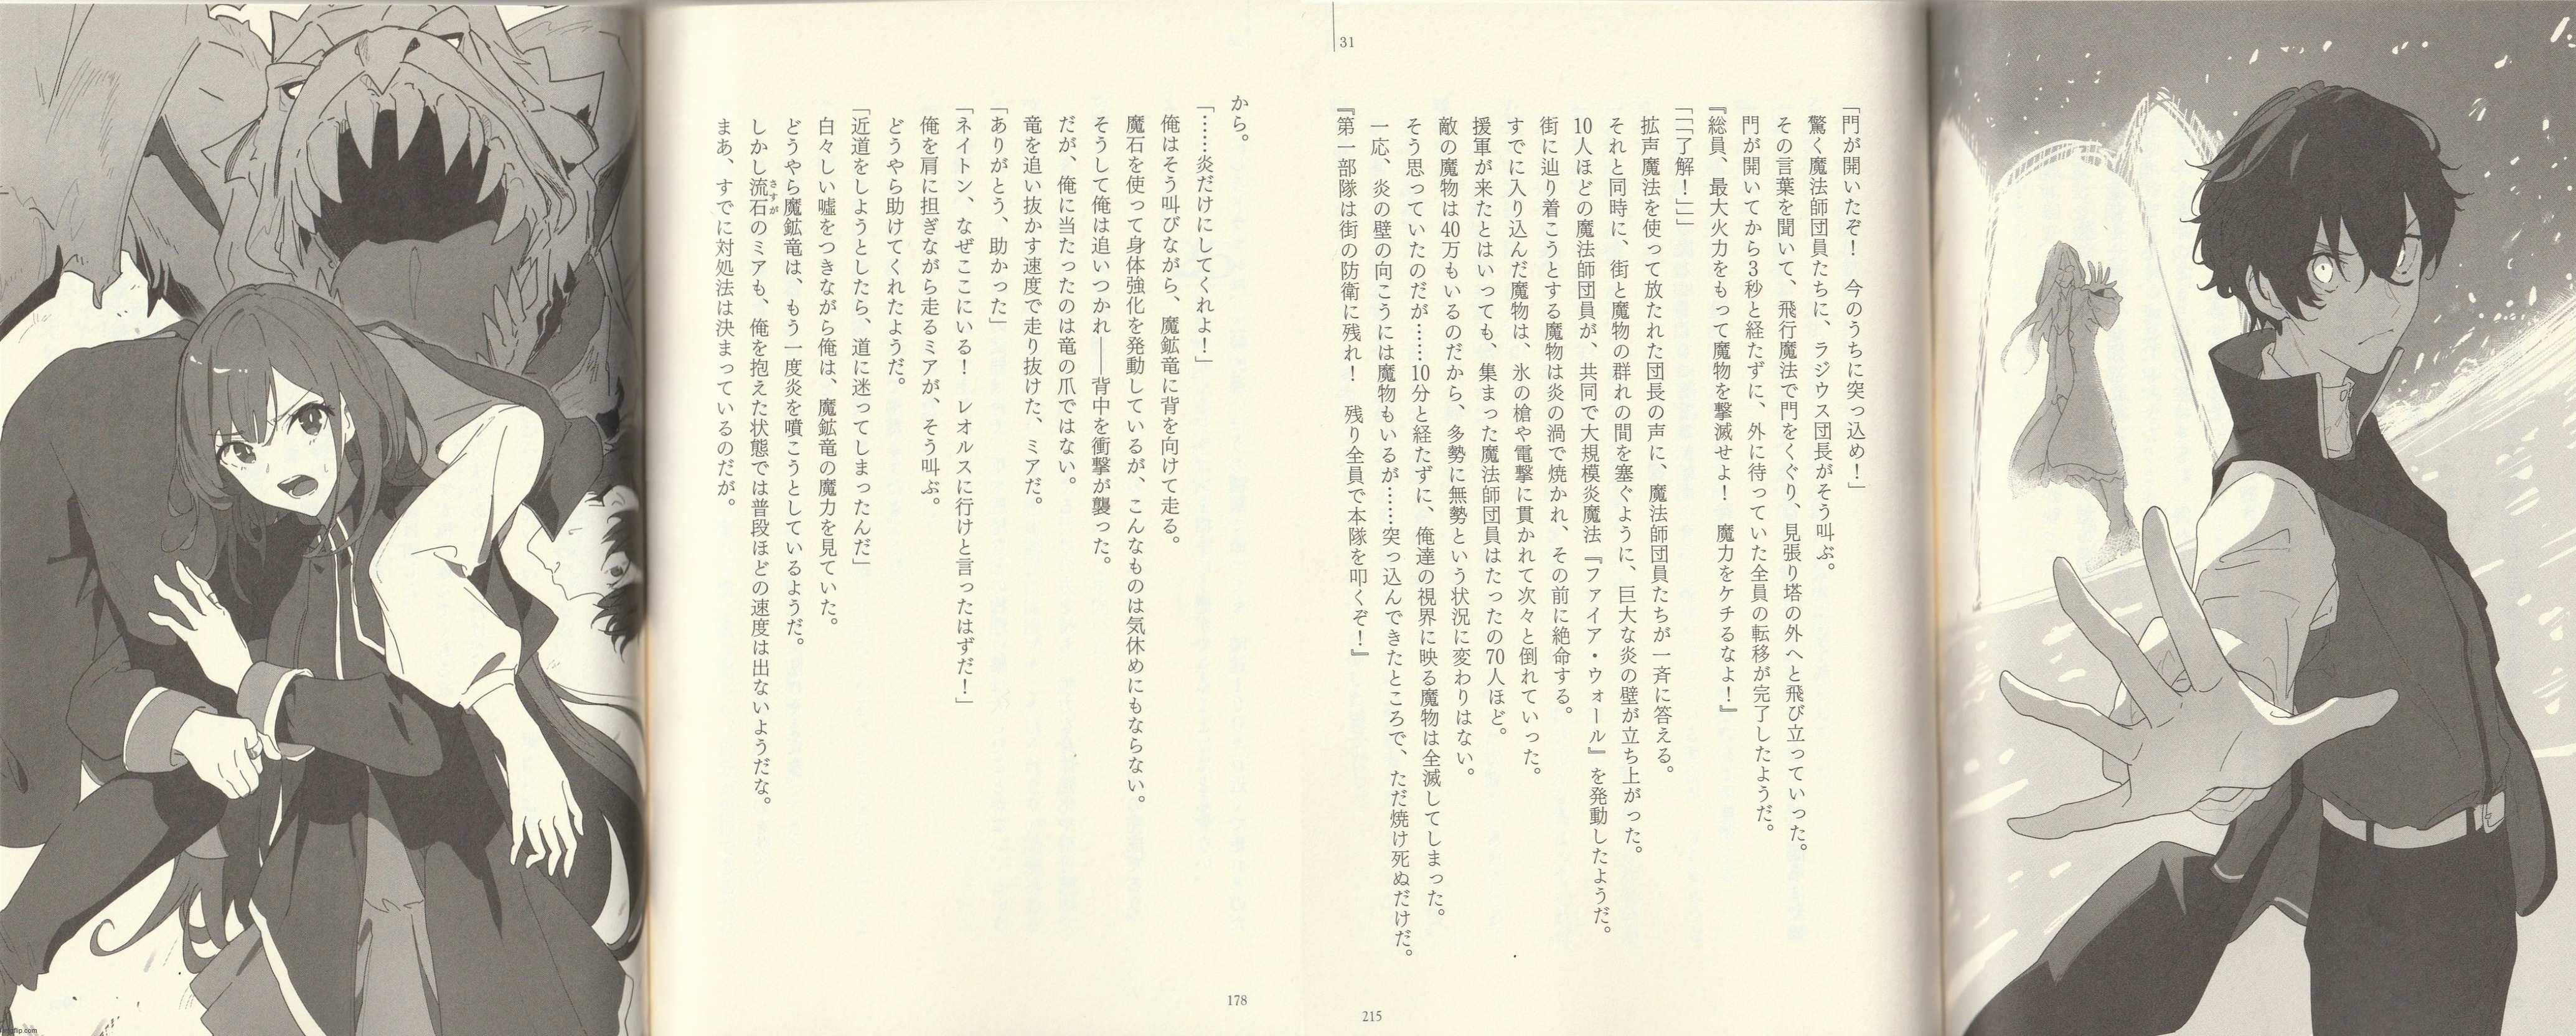 31
「門が開いたぞ！　今のうちに突っ込め！」
驚く魔法師団員たちに、ラジウス団長がそう叫ぶ。
その言葉を聞いて、飛行魔法で門をくぐり、見張り塔の外へと飛び立っていった。
門が開いてから3秒と経たずに、外に待っていた全員の転移が完了したようだ。
『総員、最大火力をもって魔物を撃滅せよ！　魔力をケチるなよ！』
「「「了解！」」」
拡声魔法を使って放たれた団長の声に、魔法師団員たちが一斉に答える。
それと同時に、街と魔物の群れの間を塞ぐように、巨大な炎の壁が立ち上がった。
10人ほどの魔法師団員が、共同で大規模炎魔法『ファイア・ウォール』を発動したようだ。
街に辿り着こうとする魔物は炎の渦で焼かれ、その前に絶命する。
すでに入り込んだ魔物は、氷の槍や電撃に貫かれて次々と倒れていった。
援軍が来たとはいっても、集まった魔法師団員はたったの70人ほど。
敵の魔物は40万もいるのだから、多勢に無勢という状況に変わりはない。
そう思っていたのだが……10分と経たずに、俺達の視界に映る魔物は全滅してしまった。
一応、炎の壁の向こうには魔物もいるが……突っ込んできたところで、ただ焼け死ぬだけだ。
『第一部隊は街の防衛に残れ！　残り全員で本隊を叩くぞ！』
215
から。
「……炎だけにしてくれよ！」
俺はそう叫びながら、魔鉱竜に背を向けて走る。
魔石を使って身体強化を発動しているが、こんなものは気休めにもならない。
そうして俺は追いつかれ――背中を衝撃が襲った。
だが、俺に当たったのは竜の爪ではない。
竜を追い抜かす速度で走り抜けた、ミアだ。
「ありがとう、助かった」
「ネイトン、なぜここにいる！　レオルスに行けと言ったはずだ！」
俺を肩に担ぎながら走るミアが、そう叫ぶ。
どうやら助けてくれたようだ。
「近道をしようとしたら、道に迷ってしまったんだ」
白々しい嘘をつきながら俺は、魔鉱竜の魔力を見ていた。
どうやら魔鉱竜は、もう一度炎を噴こうとしているようだ。
しかし流石のミアも、俺を抱えた状態では普段ほどの速度は出ないようだな。
さすが
まあ、すでに対処法は決まっているのだが。
178
imgflip.com